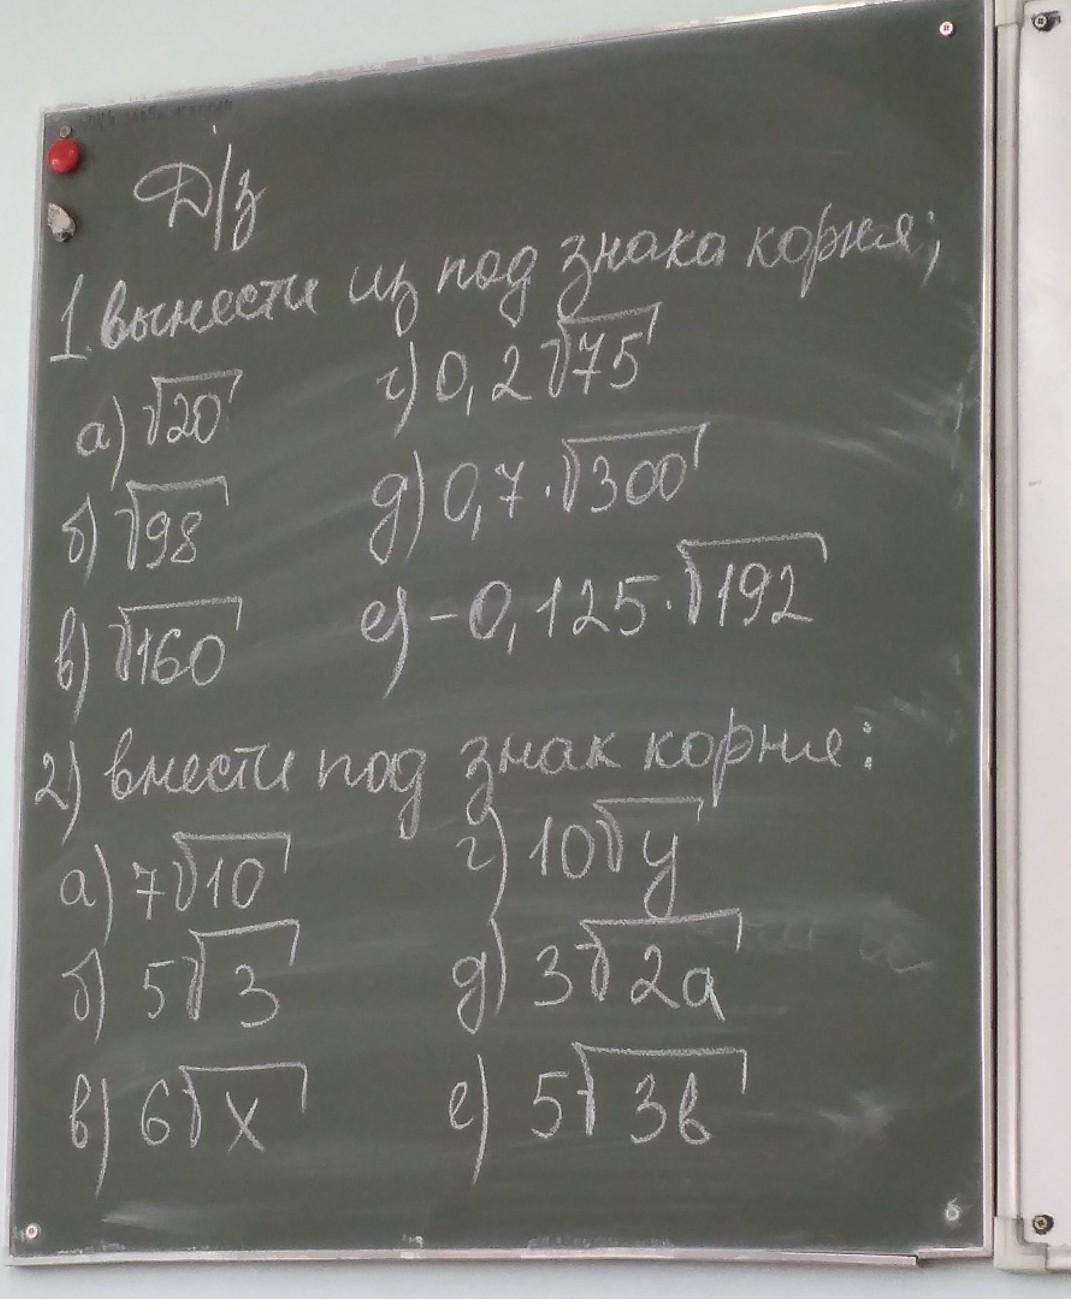 Д/з
1. вынести из под знака корня;
а) √20 г) 0,2√75
б) √98 д) 0,7·√300
в) √160 е) -0,125·√192
2) внести под знак корня:
а) 7√10 г) 10√у
б) 5√3 д) 3√2а
в) 6√х е) 5√3в